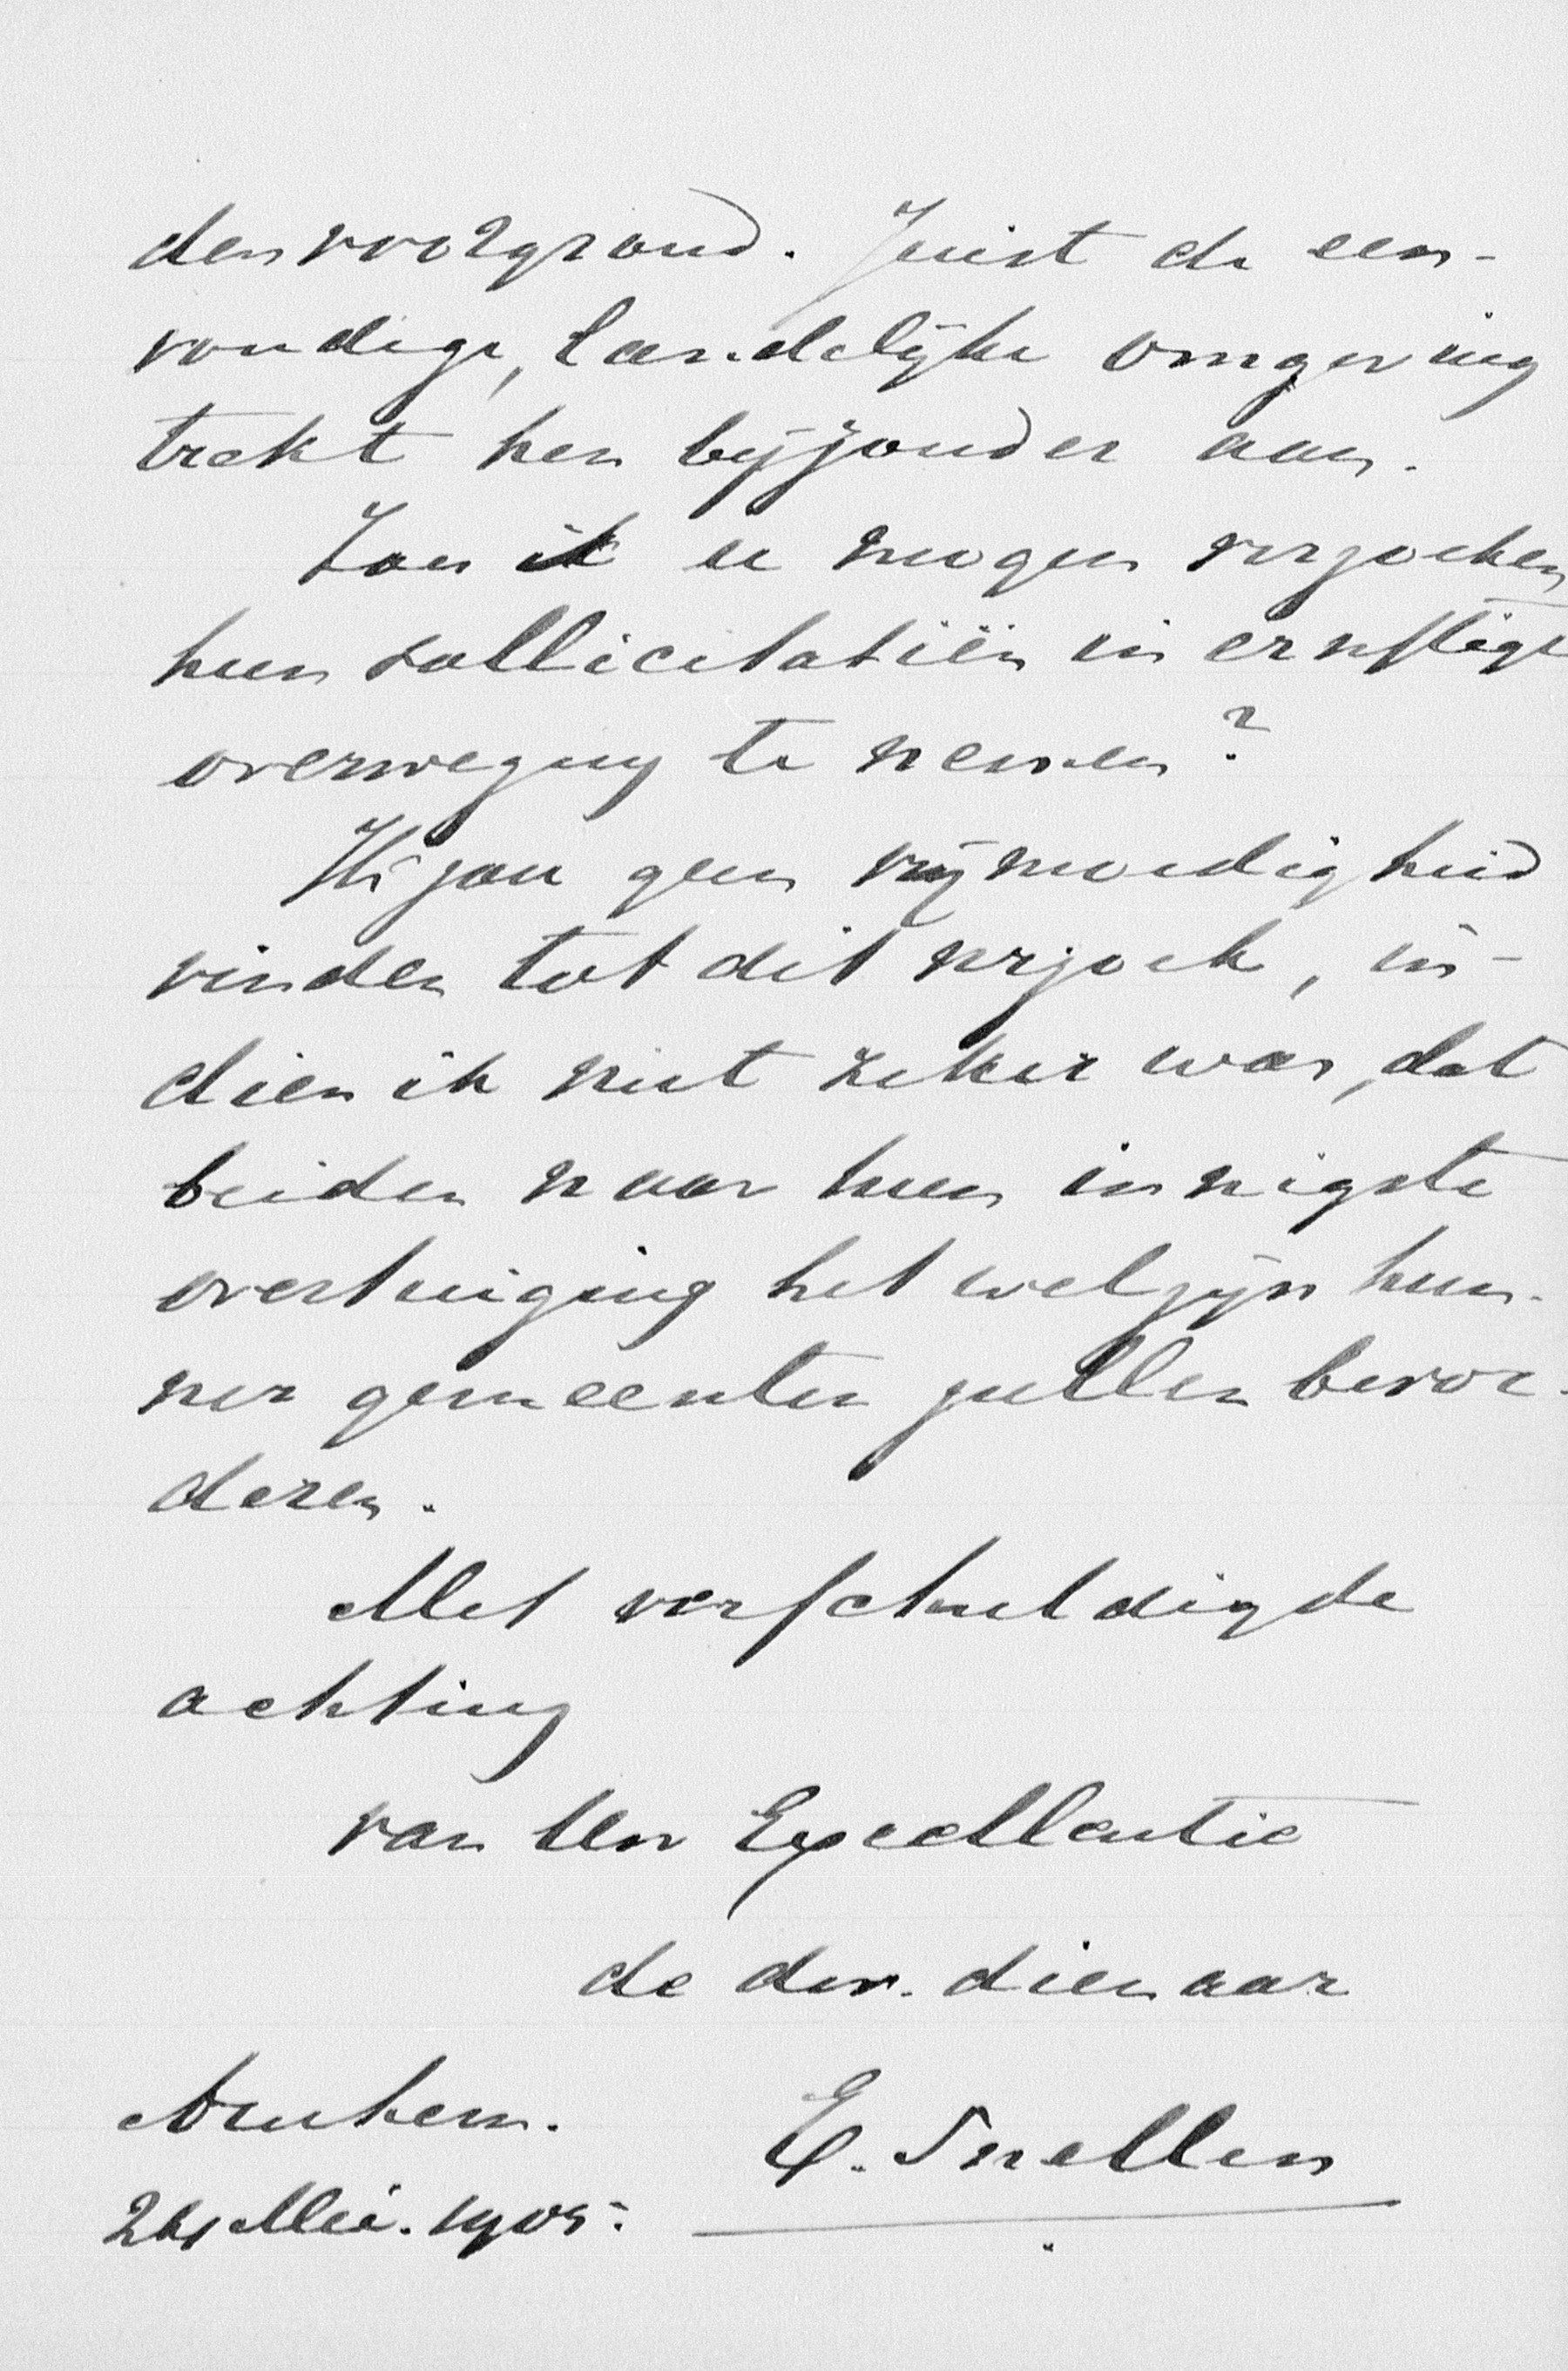 den voorgrond. Juist de een-
voudige, landelijke omgeving
trekt hen bijzonder aan.
Zou ik u mogen verzoeken
hun sollicitatiën in ernstige
overweging te nemen?
Ik zou geen vrijmoedigheid
vinden tot dit verzoek, in-
dien ik niet zeker was, dat
beiden naar hun innigste
overtuiging het welzijn hun-
ner gemeenten zullen bevor-
deren.
Met verschuldigde
achting
van Uw Excellentie
de dw. dienaar
Arnhem. E. Snellen
Mei. 1905.